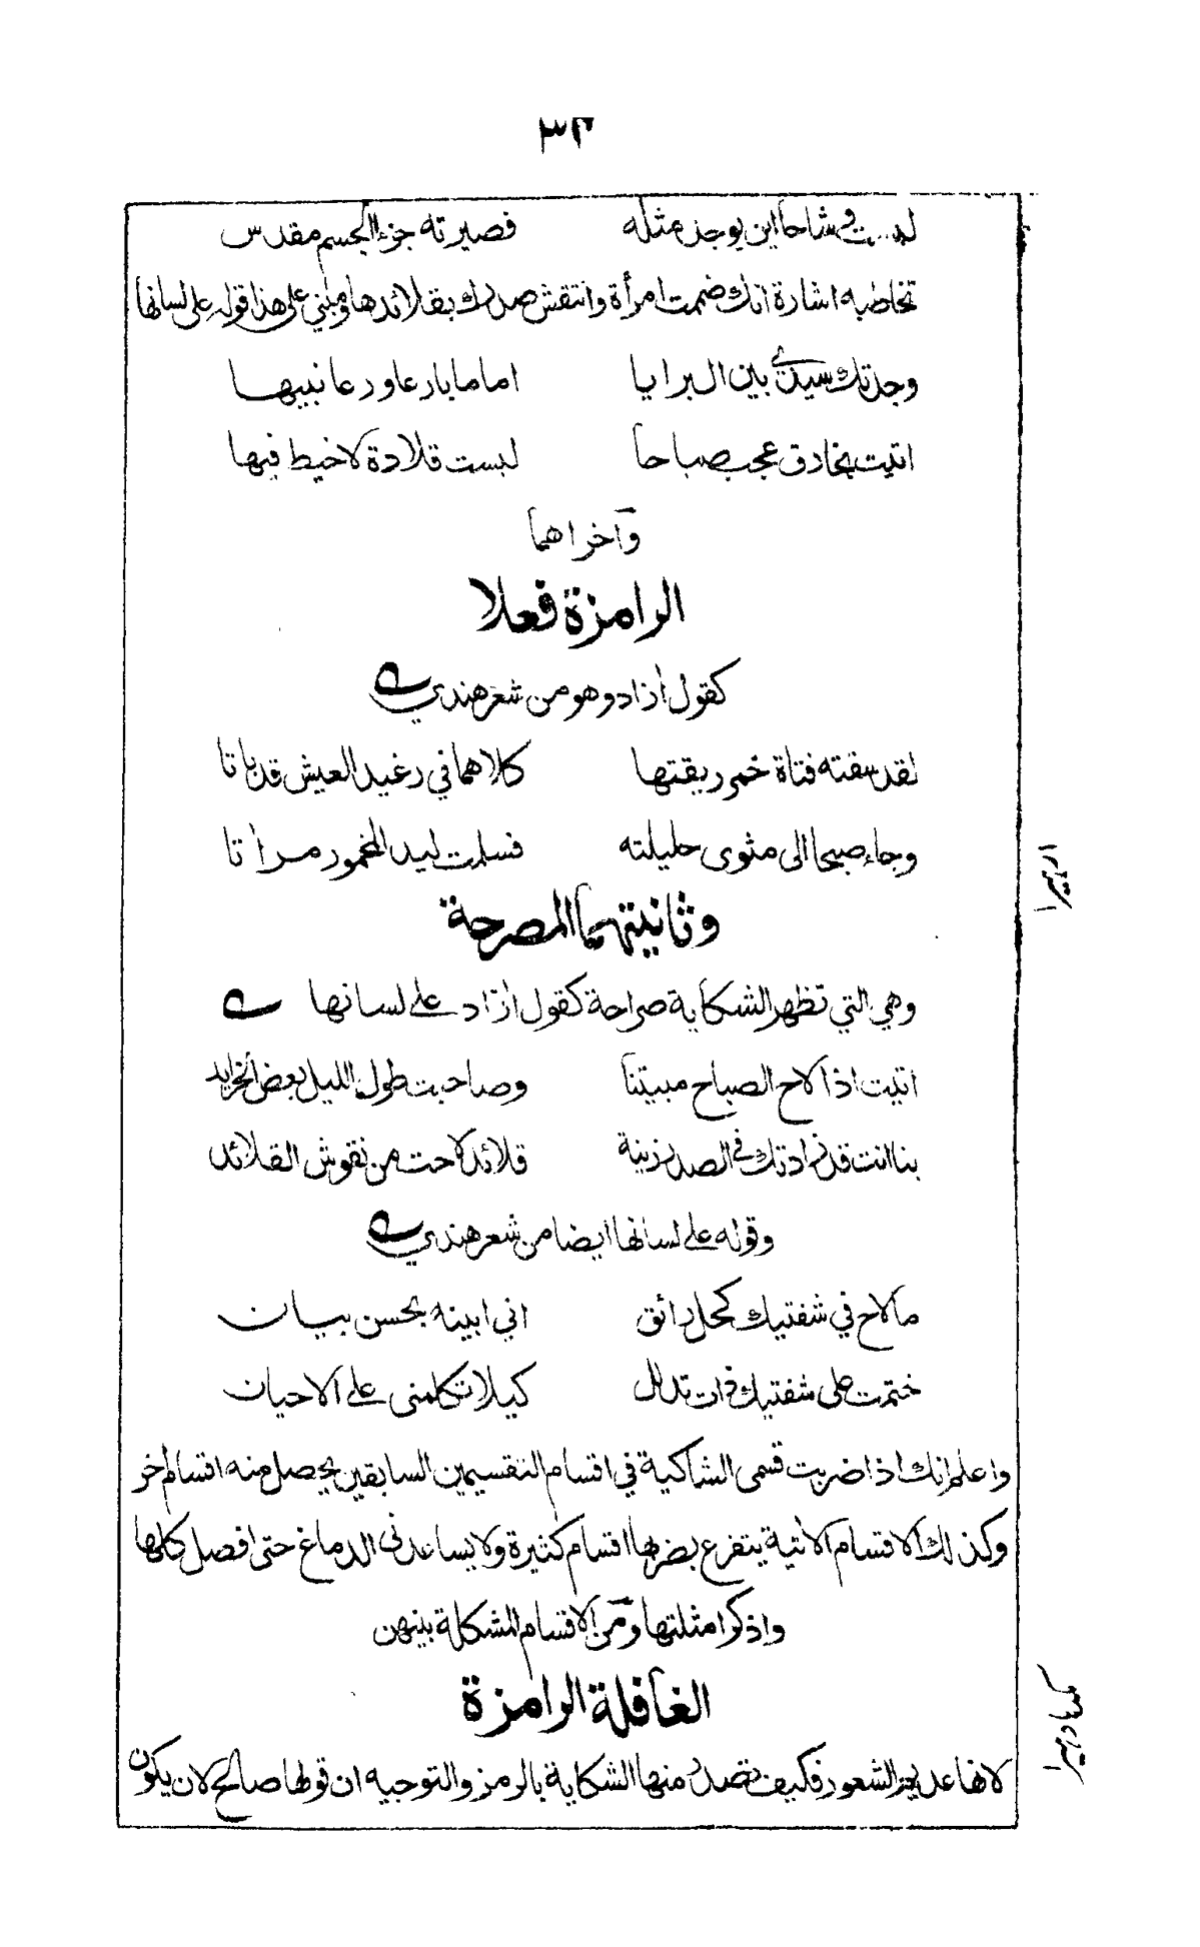 ٣٢
لبست وشاحا اين يوجد مثله فصيرته جزء الجسم مقدس
تخاطبه اشارة انك ضممت امرأة وانتقش صدرك بقلائدها ومبني على هذا قوله على لسانها
وجدتك سيدي بين البرايا اماما بارعا ورعا نبيها
اتيت بخارق عجب صباحا لبست قلادة لا خيط فيها
وآخراهما
الرامزة فعلا
كقول ازاد وهو من شعر هندي
لقد سقته فتاة خمر ريقتها كلاهما في رغيد العيش قد باتا
وجاء صبحا الى مثوى حليلته فسلمت ليد المخمور مراتا
وثانيتهما المصرحة
وهي التي تظهر الشكاية صراحة كقول ازاد على لسانها
اتيت اذا لاح الصباح مبيتنا وصاحبت طول الليل بعض الخرايد
بنا انت قد زادتك في الصدر زينة قلائد لاحت من نقوش القلائد
وقوله على لسانها ايضا من شعر هندي
ما لاح في شفتيك كحل رائق اني ابينه بحسن بيان
ختمت على شفتيك ذات تدلل كيلا تكلمنى على الاحيان
واعلم انك اذا ضربت قسمى الشاكية في اقسام التقسيمين السابقين يحصل منه اقسام اخر
وكذلك الاقسام الاتية يتفرع بضربها اقسام كثيرة ولا يساعدنى الدماغ حتى افصل كلها
واذكر امثلتها ومن الاقسام المشكلة بينهن
الغافلة الرامزة
لانها عديمة الشعور فكيف تصدر منها الشكاية بالرمز والتوجيه ان قولها صالح لان يكون